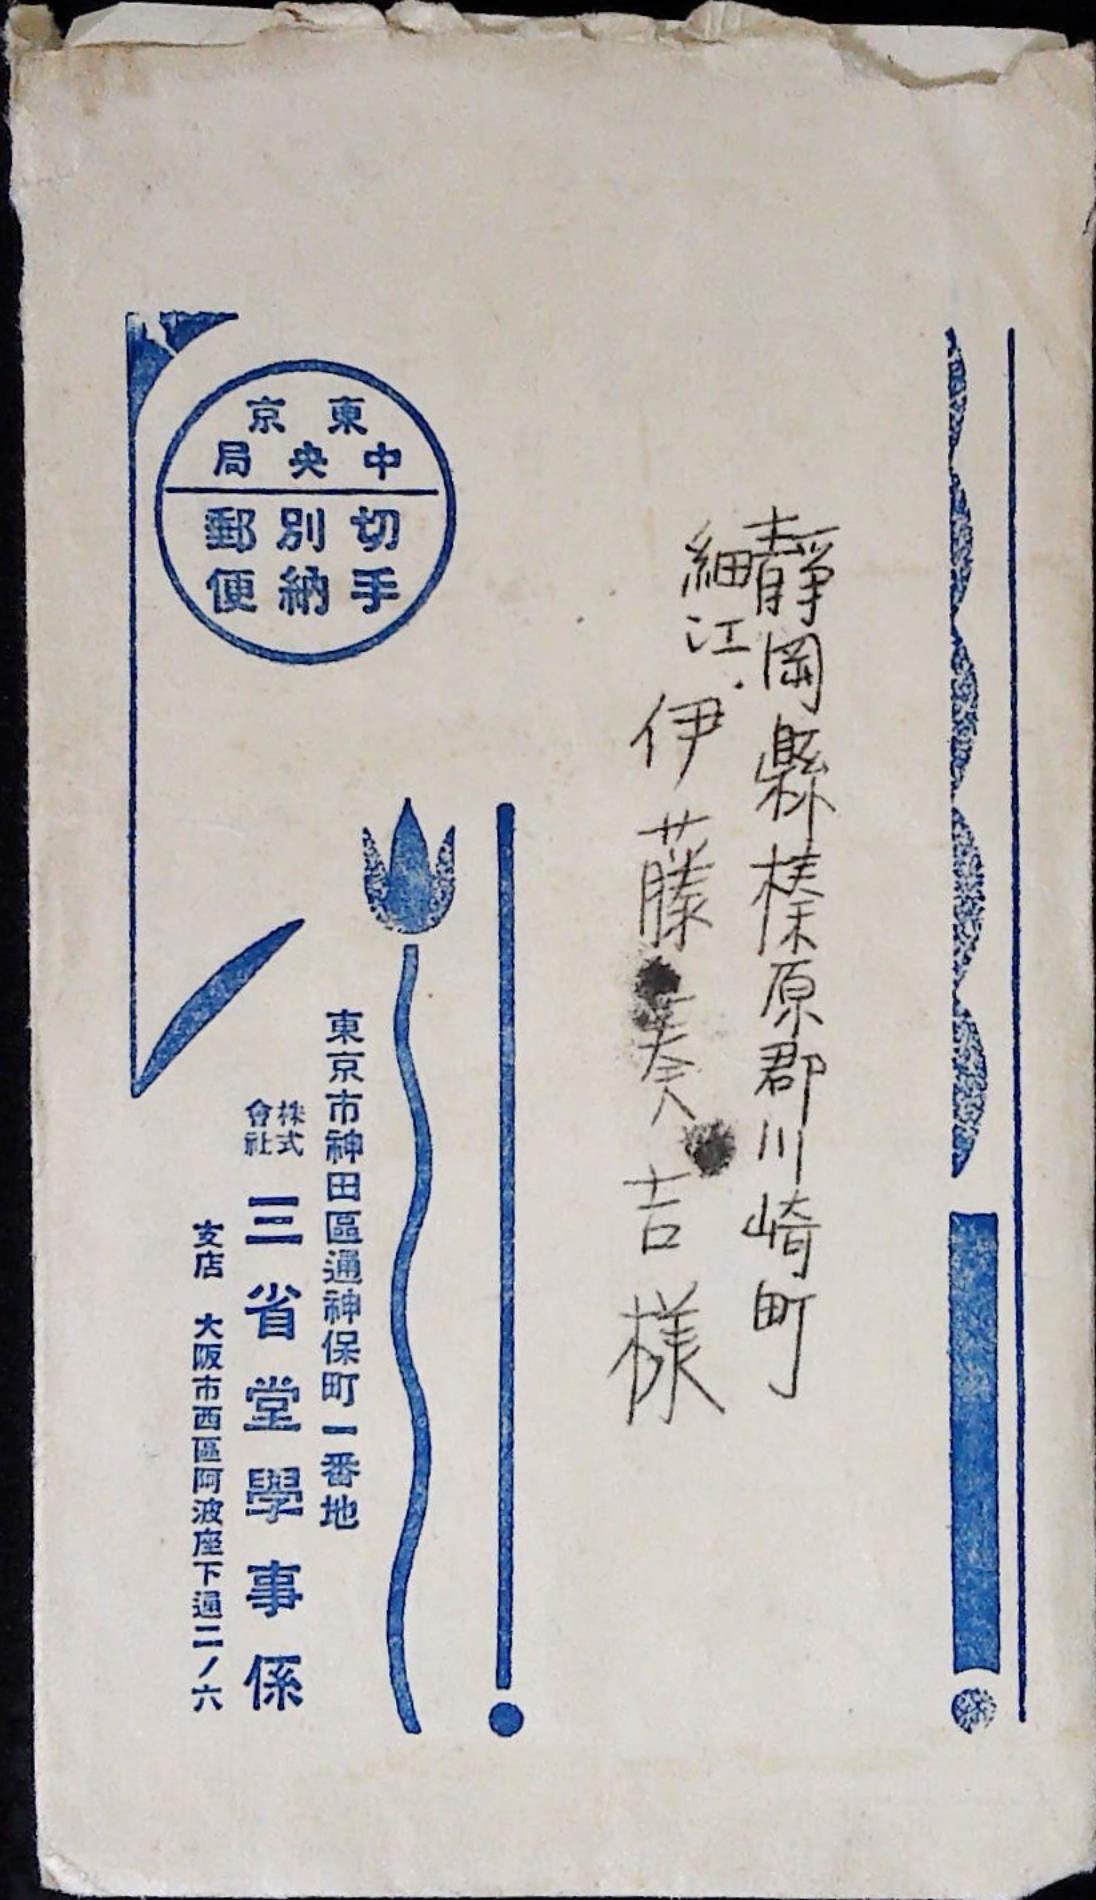 靜岡縣榛原郡川崎町
細江
伊藤奏吉樣
東京
中央局
切手
別納
郵便
東京市神田區通神保町一番地
株式會社
三省堂學事係
支店 大阪市西區阿波座下通二ノ六